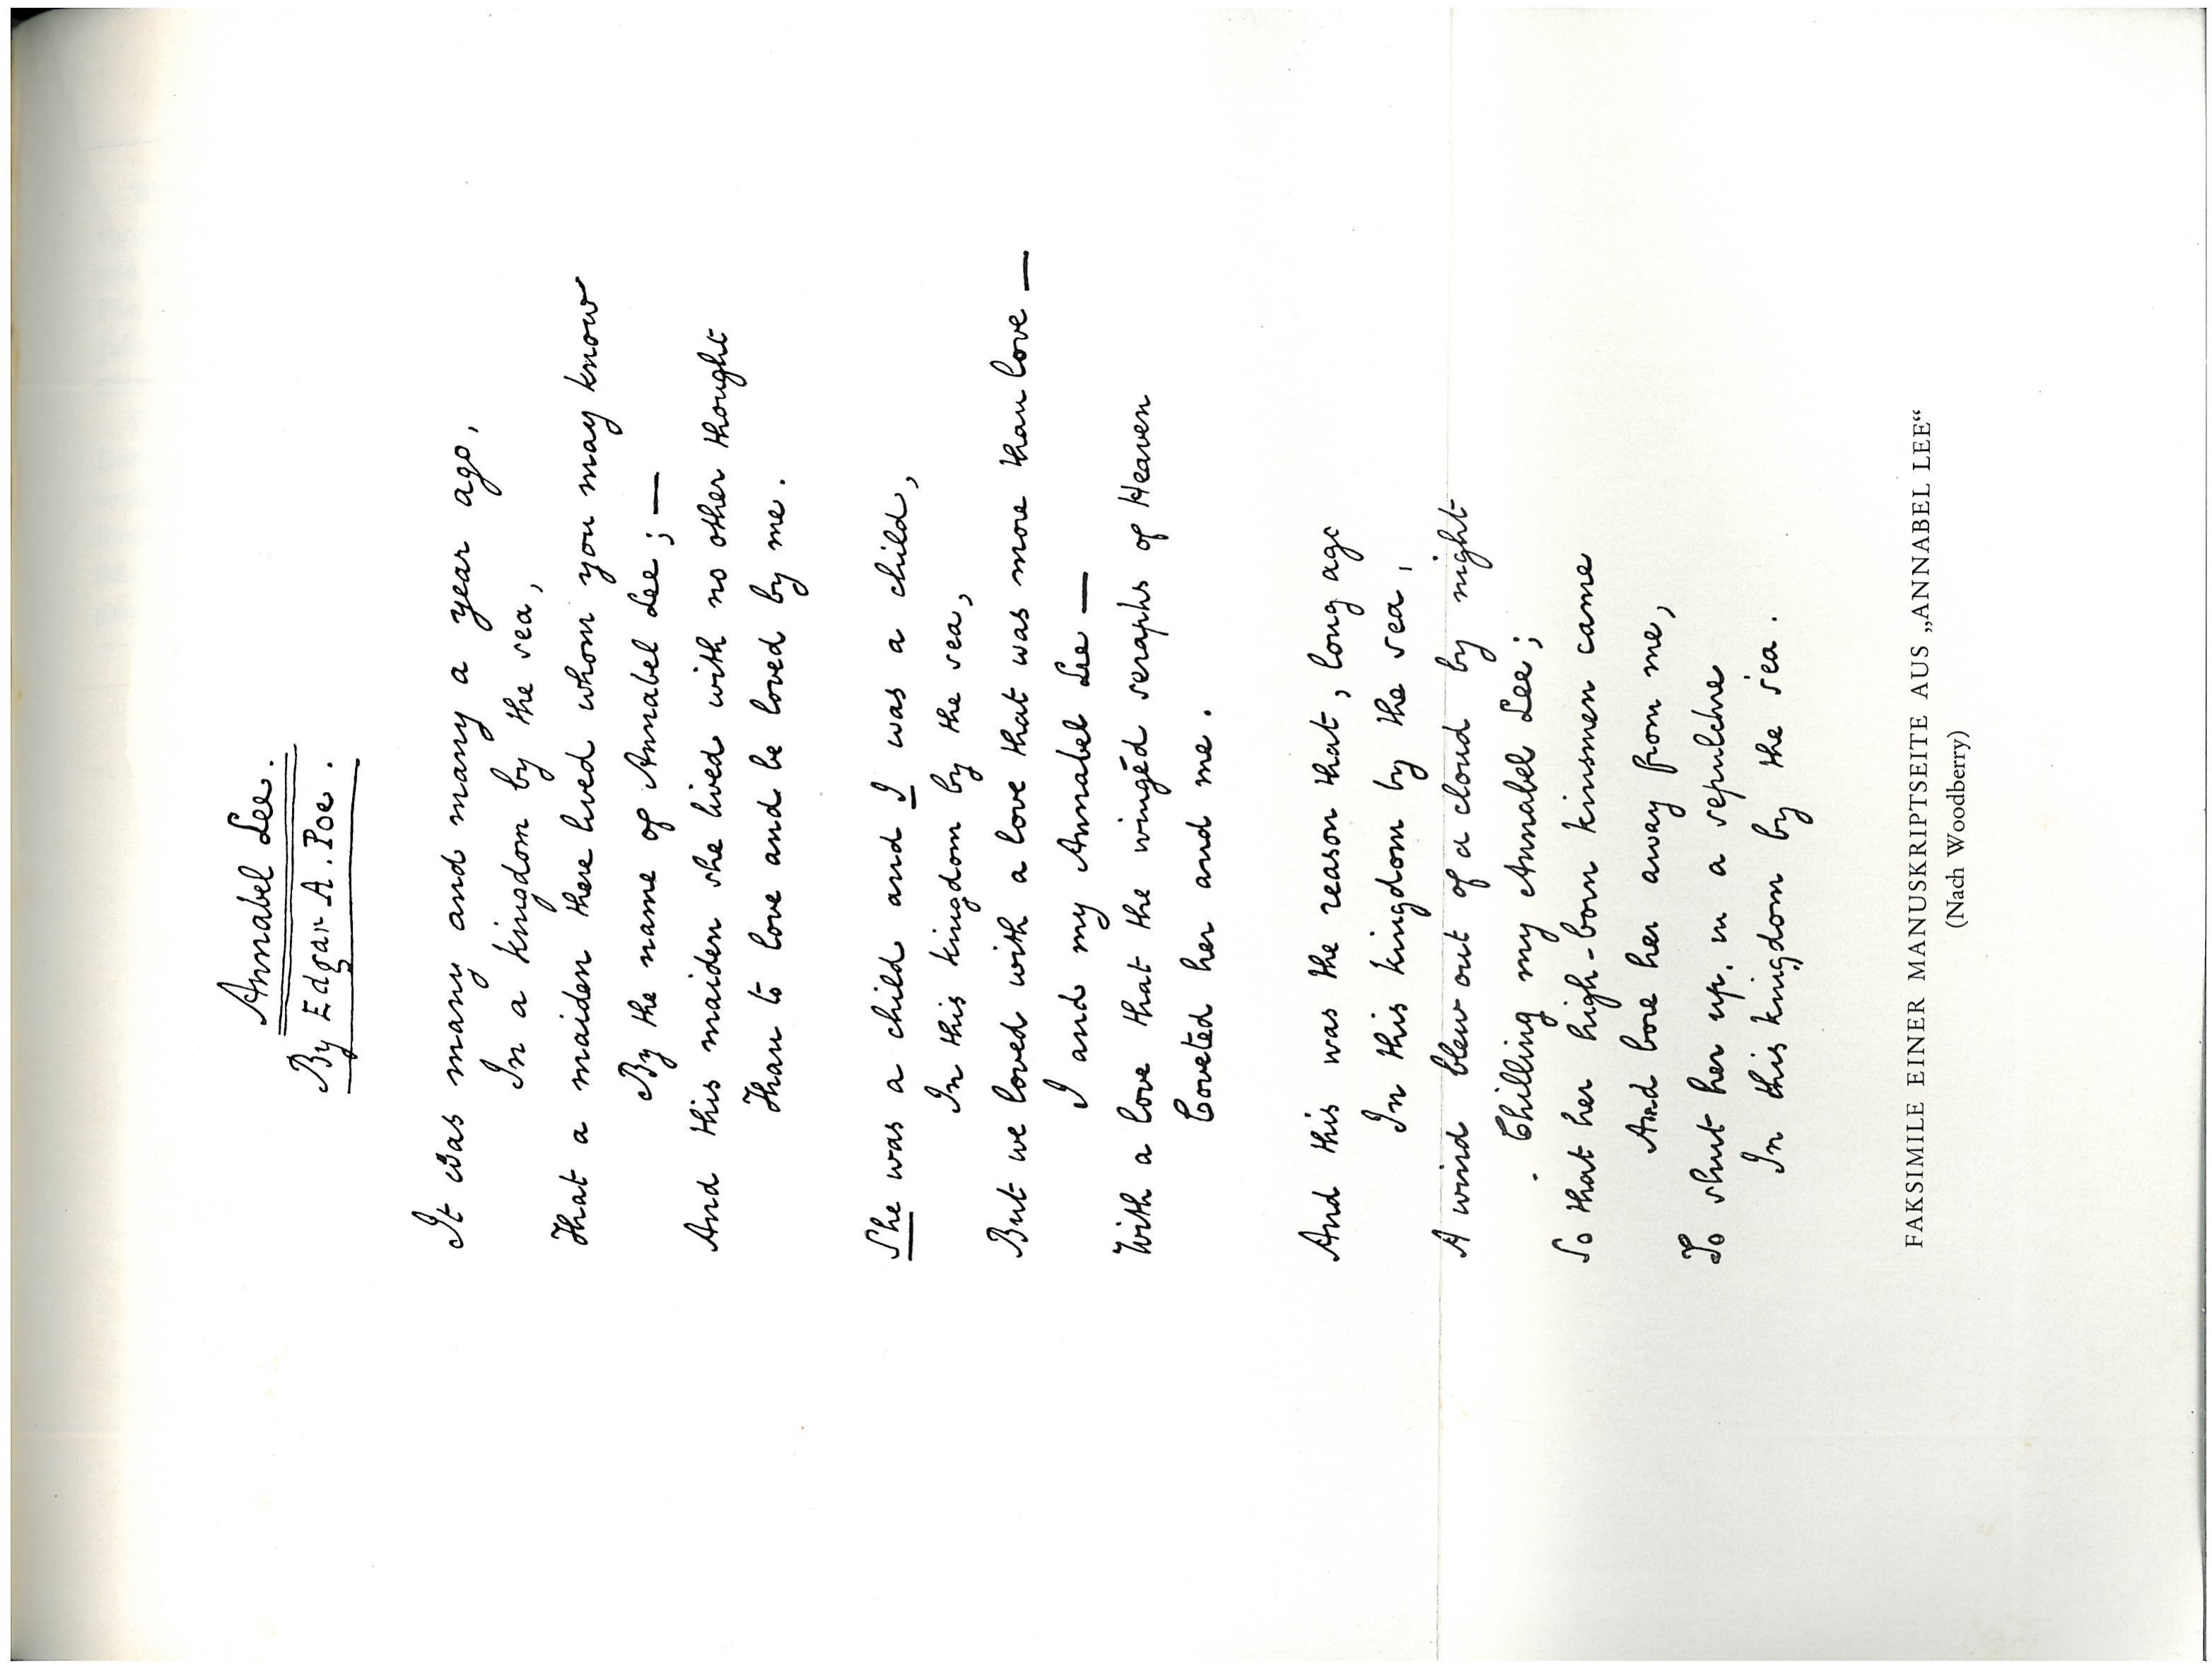 Annabel Lee.
By Edgar A. Poe.
It was many and many a year ago,
In a kingdom by the sea,
That a maiden there lived whom you may know
By the name of Annabel Lee; —
And this maiden she lived with no other thought
Than to love and be loved by me.
She was a child and I was a child,
In this kingdom by the sea,
But we loved with a love that was more than love —
I and my Annabel Lee —
With a love that the wingéd seraphs of Heaven
Coveted her and me.
And this was the reason that, long ago
In this kingdom by the sea,
A wind blew out of a cloud by night
Chilling my Annabel Lee;
So that her high-born kinsmen came
And bore her away from me,
To shut her up, in a sepulchre
In this kingdom by the sea.
FAKSIMILE EINER MANUSKRIPTSEITE AUS „ANNABEL LEE“
(Nach Woodberry)